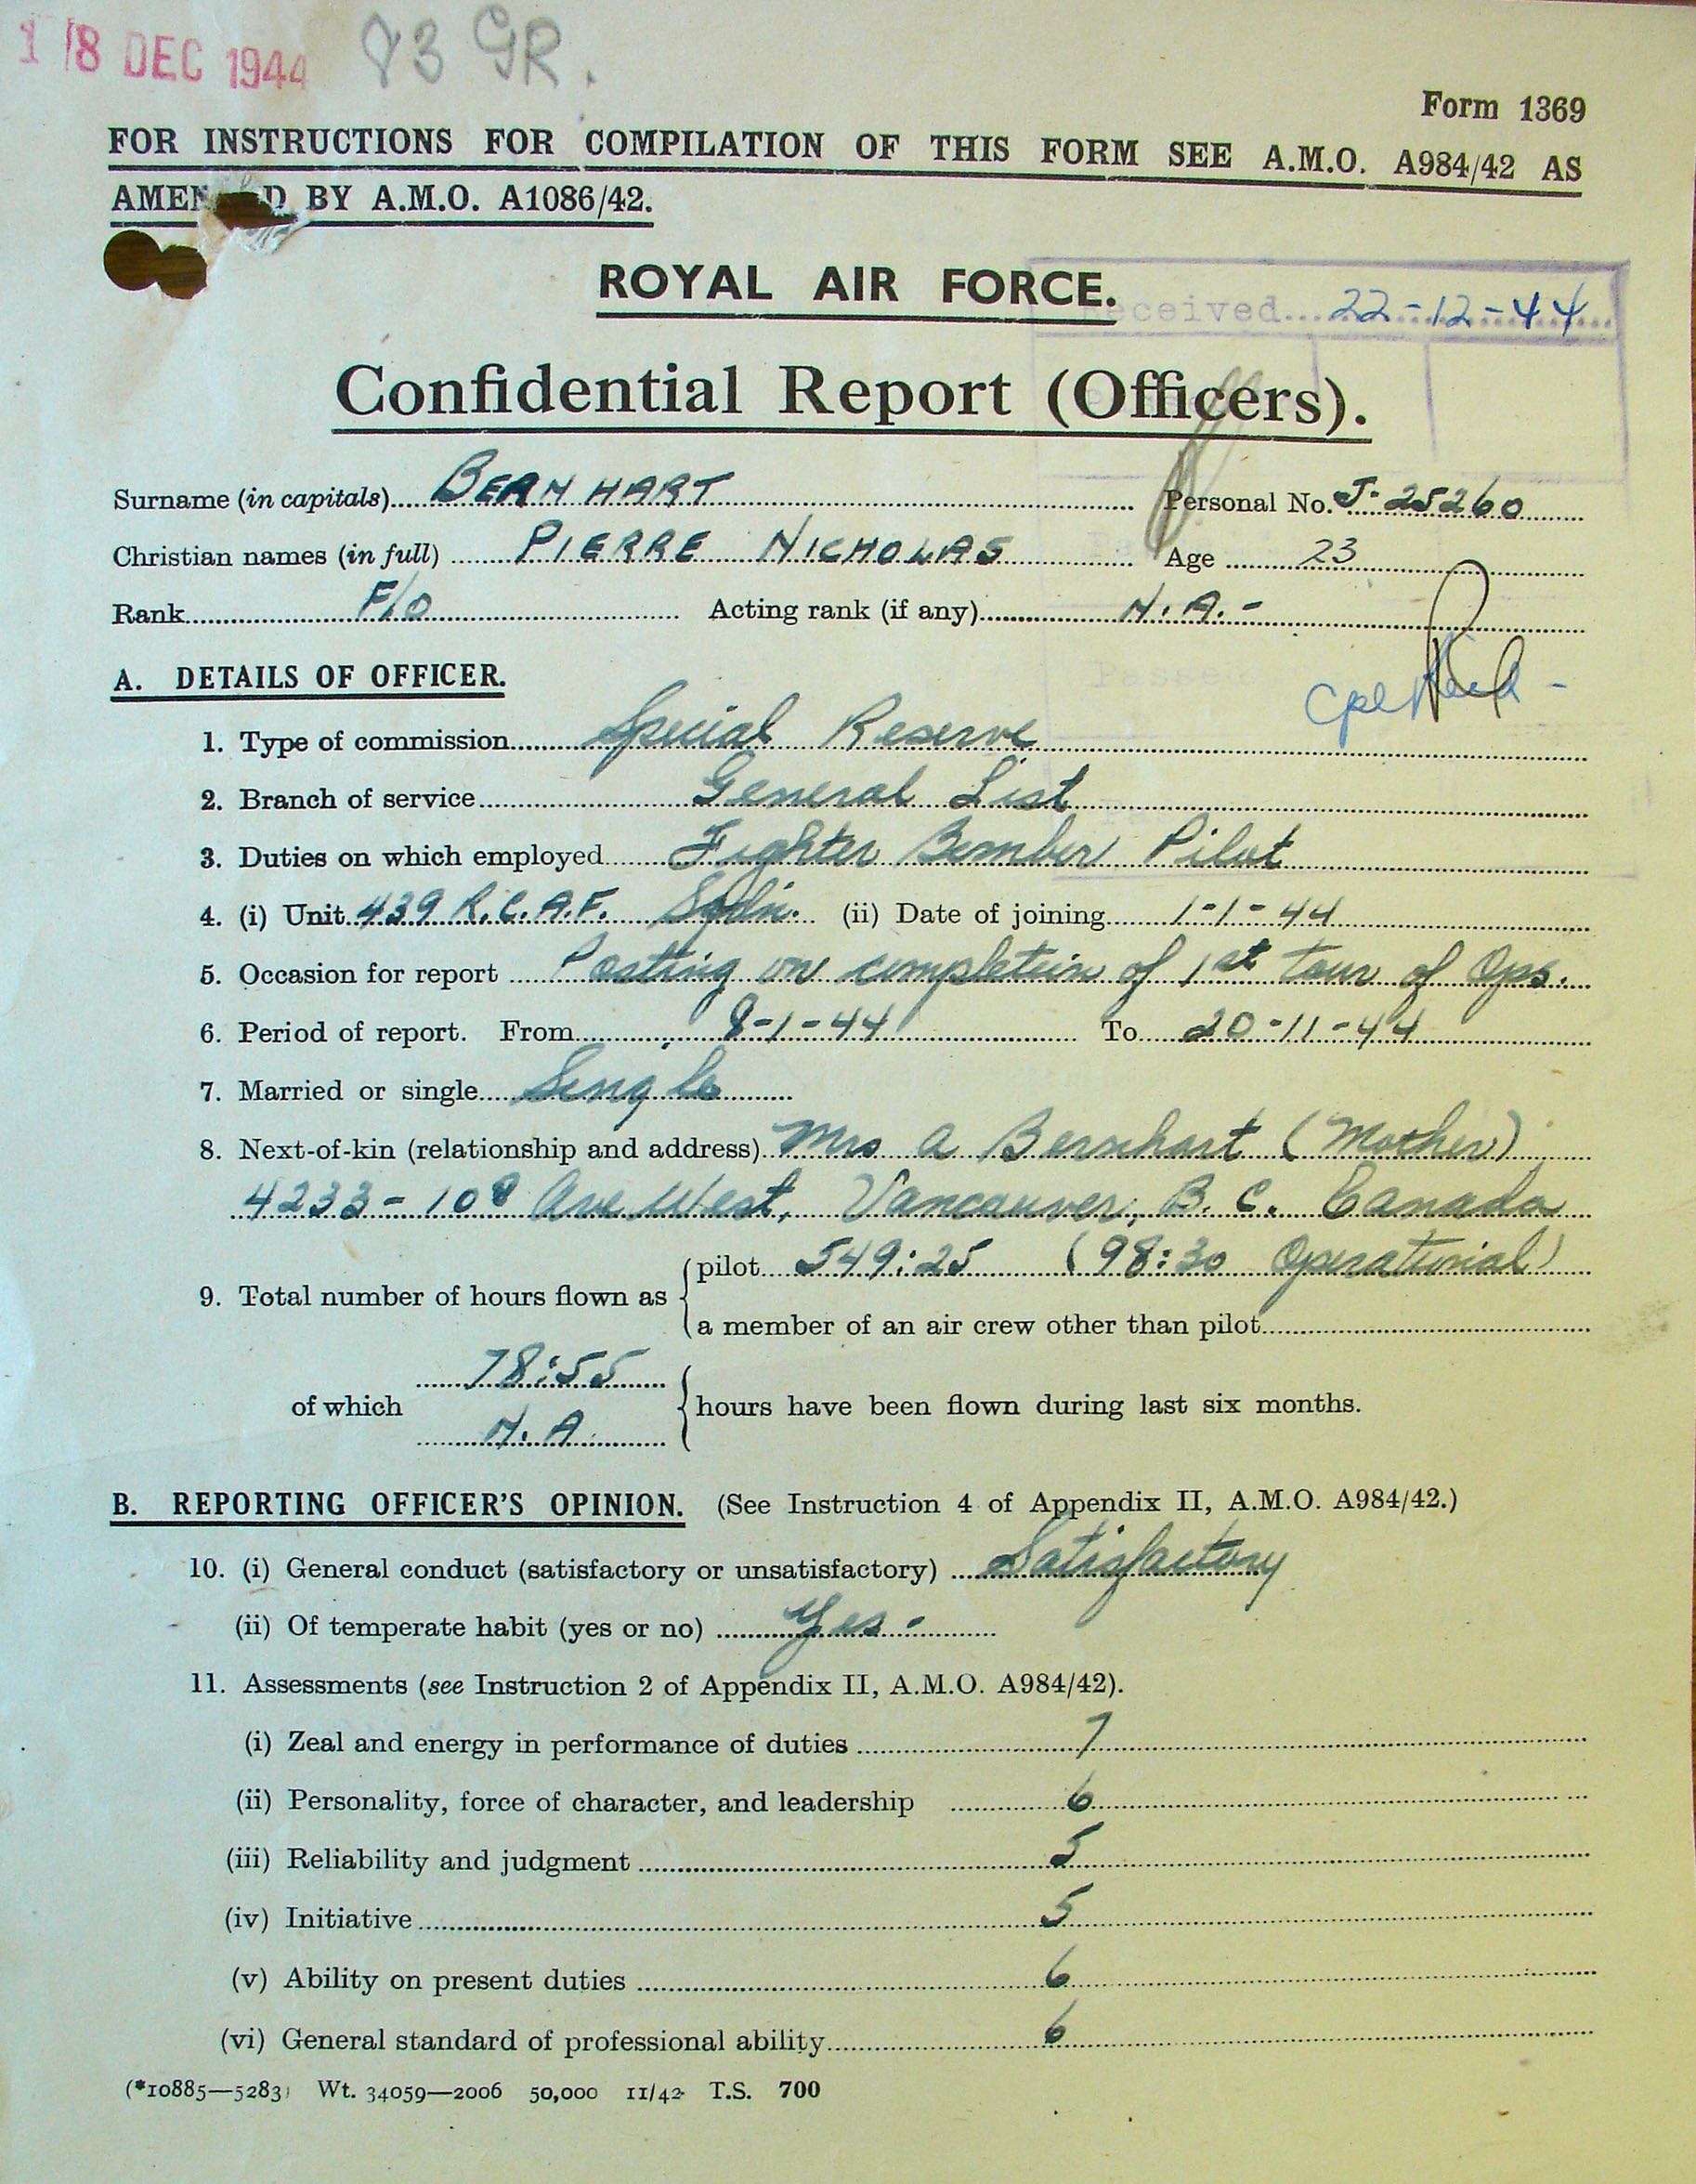 18 DEC 1944 83 GR.
Form 1369
FOR INSTRUCTIONS FOR COMPILATION OF THIS FORM SEE A.M.O. A984/42 AS
AMEN D BY A.M.O. A1086/42.
ROYAL AIR FORCE.
Received 22-12-44
Confidential Report (Officers).
Surname (in capitals) BERNHART Personal No. J.25260
Christian names (in full) PIERRE NICHOLAS Age 23
Rank F/O Acting rank (if any) N.A.-
Passed
A. DETAILS OF OFFICER.
Cpl
1. Type of commission Special Reserve
2. Branch of service General List
3. Duties on which employed Fighter Bomber Pilot
4. (i) Unit 439 R.C.A.F. Sqdn. (ii) Date of joining 1-1-44
5. Occasion for report Posting on completion of 1st tour of Ops.
6. Period of report. From 8-1-44 To 20-11-44
7. Married or single Single
8. Next-of-kin (relationship and address) Mrs A Bernhart (Mother)
4233-10th Ave West, Vancouver, B.C. Canada
9. Total number of hours flown as pilot 549:25 (98:30 Operational)
a member of an air crew other than pilot
78:55
of which hours have been flown during last six months.
N.A.
B. REPORTING OFFICER'S OPINION. (See Instruction 4 of Appendix II, A.M.O. A984/42.)
10. (i) General conduct (satisfactory or unsatisfactory) Satisfactory
(ii) Of temperate habit (yes or no) Yes-
11. Assessments (see Instruction 2 of Appendix II, A.M.O. A984/42).
(i) Zeal and energy in performance of duties 7
(ii) Personality, force of character, and leadership 6
(iii) Reliability and judgment 5
(iv) Initiative 5
(v) Ability on present duties 6
(vi) General standard of professional ability 6
(*10885—5283) Wt. 34059—2006 50,000 11/42 T.S. 700